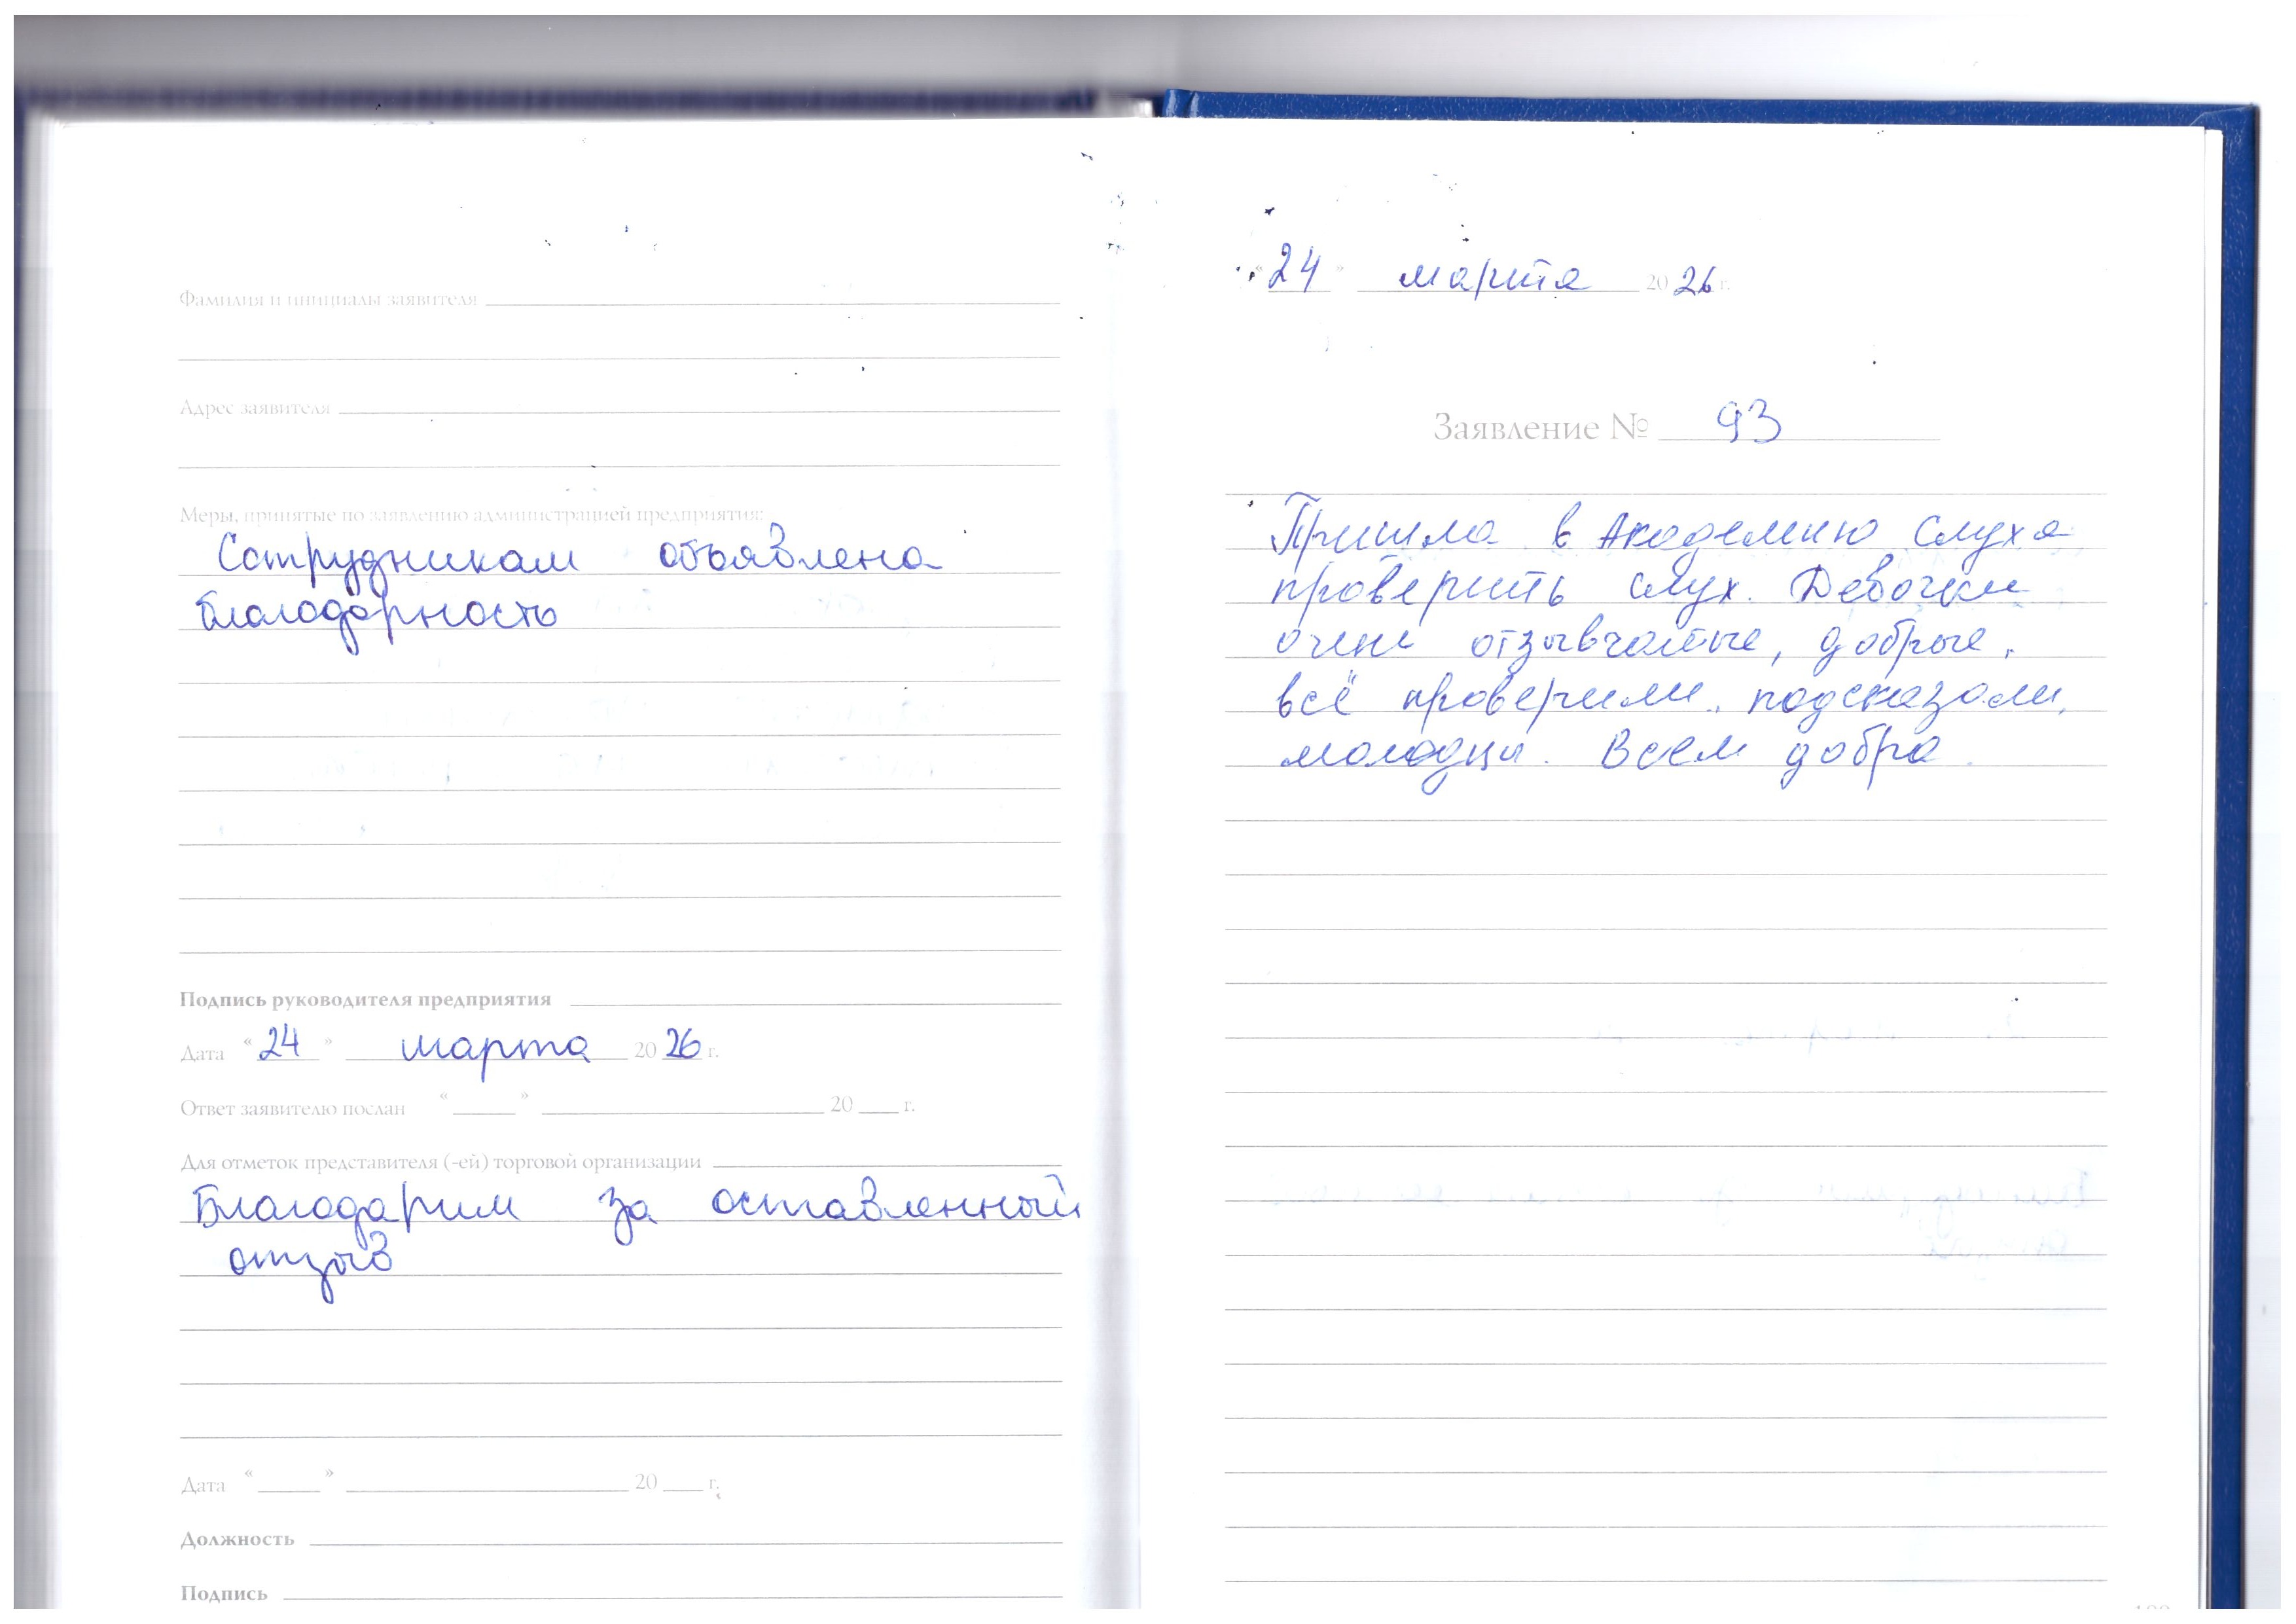 Фамилия и инициалы заявителя
Адрес заявителя
Меры, принятые по заявлению администрацией предприятия:
Сотрудникам объявлена
благодарность
Подпись руководителя предприятия
Дата "24" марта 2026 г.
Ответ заявителю послан " " 20 г.
Для отметок представителя (-ей) торговой организации
Благодарим за оставленный
отзыв
Дата " " 20 г.
Должность
Подпись
"24" марта 2026 г.
Заявление № 93
Пришла в Академию Слуха
проверить слух. Девочки
очень отзывчатые, добрые,
всё проверили, подсказали,
молодцы. Всем добра.